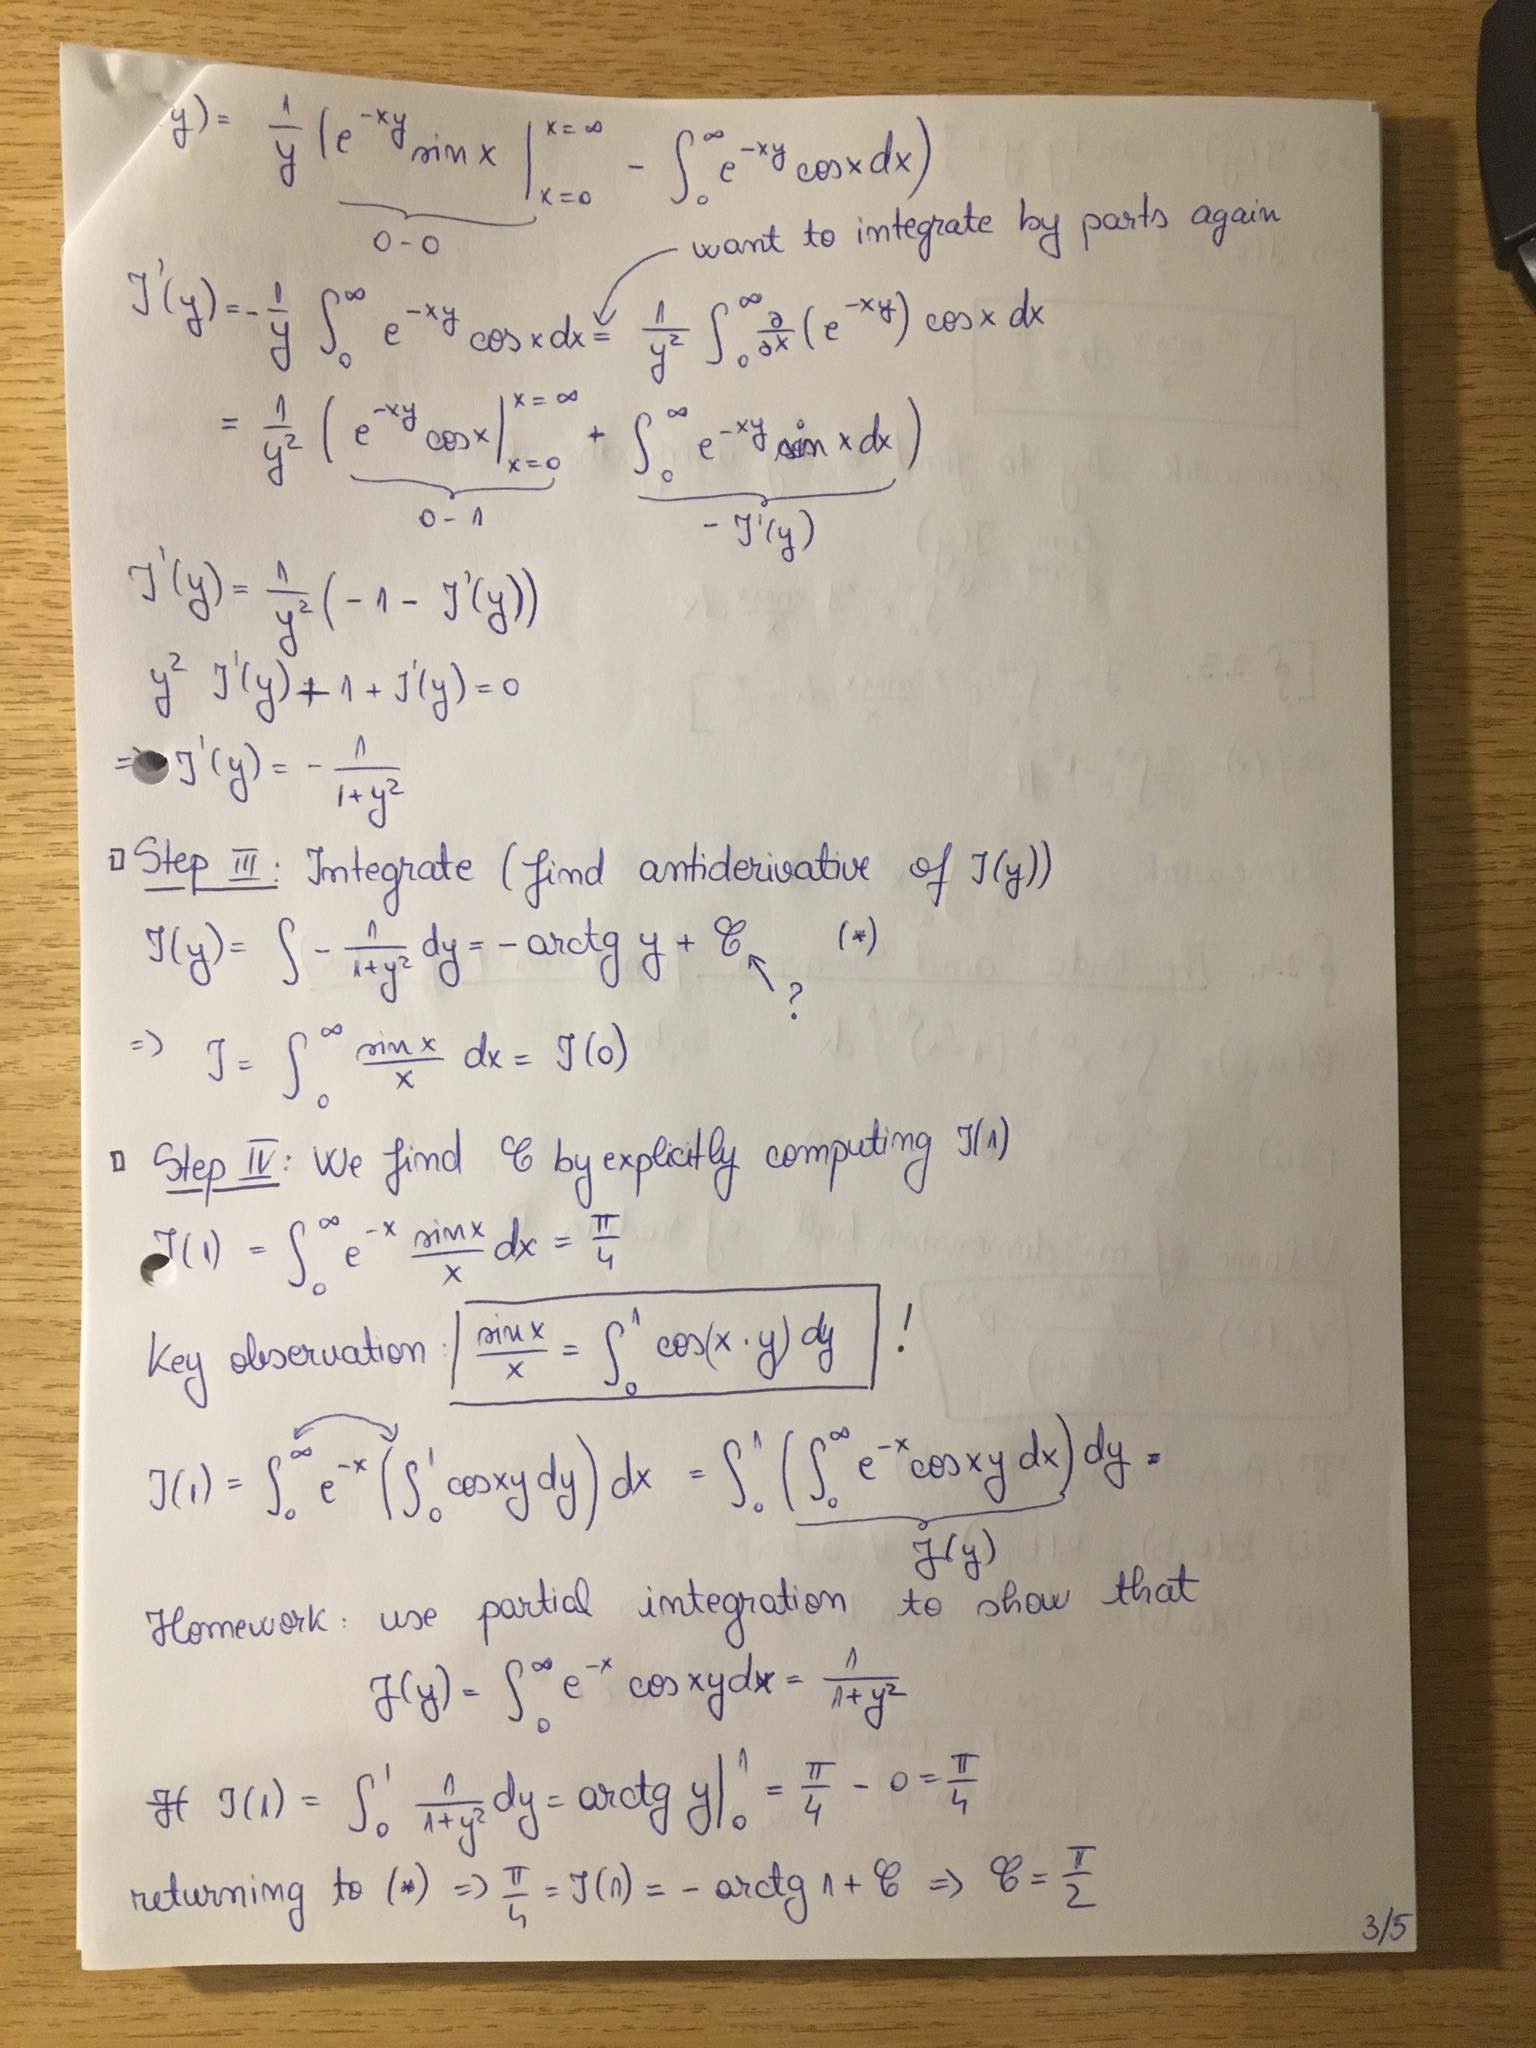 y) = 1/y (e^{-xy} sin x |_{x=0}^{x=∞} - ∫_0^∞ e^{-xy} cosx dx)
0-0
want to integrate by parts again
J'(y) = -1/y ∫_0^∞ e^{-xy} cosx dx = 1/y² ∫_0^∞ ∂/∂x (e^{-xy}) cosx dx
= 1/y² (e^{-xy} cosx |_{x=0}^{x=∞} + ∫_0^∞ e^{-xy} sin x dx)
0-1 -J'(y)
J'(y) = 1/y² (-1 - J'(y))
y² J'(y) + 1 + J'(y) = 0
=> J'(y) = - 1/(1+y²)
▯ Step III: Integrate (find antiderivative of J(y))
J(y) = ∫ - 1/(1+y²) dy = - arctg y + C (*)
?
=> J = ∫_0^∞ sin x/x dx = J(0)
▯ Step IV: We find C by explicitly computing J(1)
J(1) = ∫_0^∞ e^{-x} sinx/x dx = π/4
Key observation: sinx/x = ∫_0^1 cos(x·y) dy !
J(1) = ∫_0^∞ e^{-x} (∫_0^1 cosxy dy) dx = ∫_0^1 (∫_0^∞ e^{-x} cosxy dx) dy =
J(y)
Homework: use partial integration to show that
J(y) = ∫_0^∞ e^{-x} cosxy dx = 1/(1+y²)
J(1) = ∫_0^1 1/(1+y²) dy = arctg y |_0^1 = π/4 - 0 = π/4
returning to (*) => π/4 = J(1) = - arctg 1 + C => C = π/2
3/5